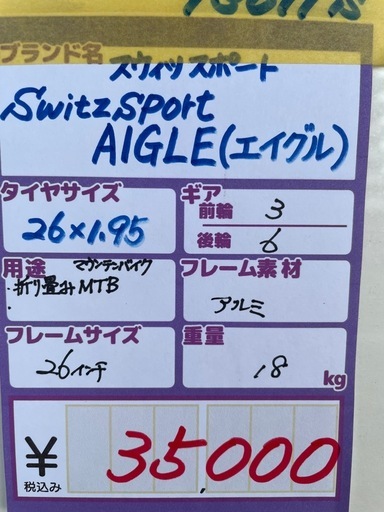 ブランド名
スウィツスポート
SwitzSport
AIGLE(エイグル)
タイヤサイズ
26×1.95
ギア
前輪 3
後輪 6
用途 マウンテンバイク
折り畳みMTB
フレーム素材
アルミ
フレームサイズ
26インチ
重量
18 kg
¥ 35,000
税込み